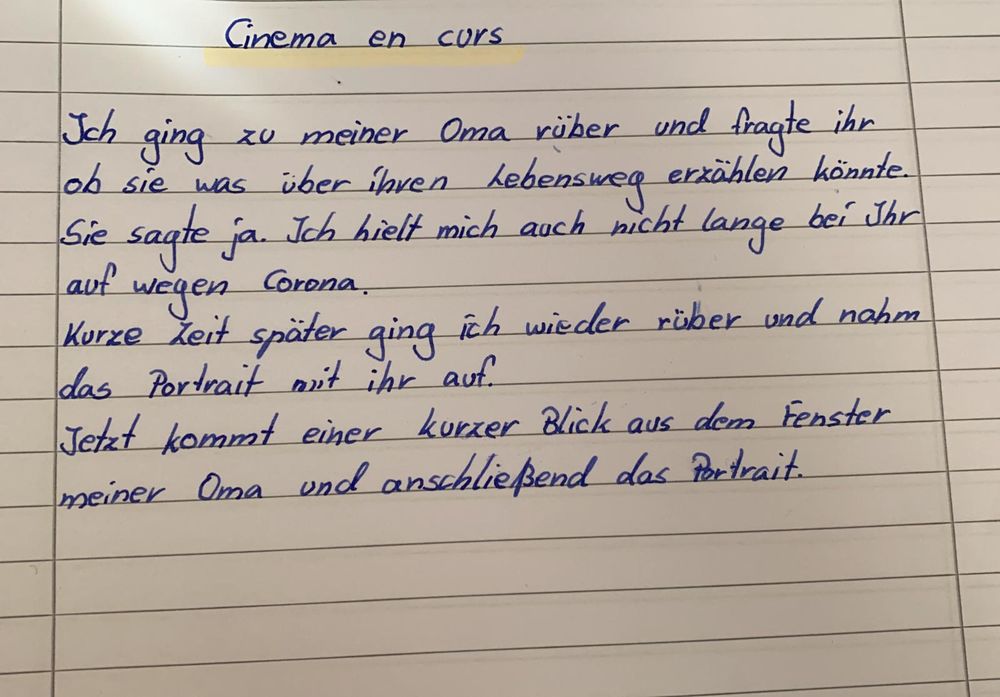 Cinema en curs
Ich ging zu meiner Oma rüber und fragte ihr
ob sie was über ihren Lebensweg erzählen könnte.
Sie sagte ja. Ich hielt mich auch nicht lange bei Ihr
auf wegen Corona.
Kurze Zeit später ging ich wieder rüber und nahm
das Portrait mit ihr auf.
Jetzt kommt einer kurzer Blick aus dem Fenster
meiner Oma und anschließend das Portrait.